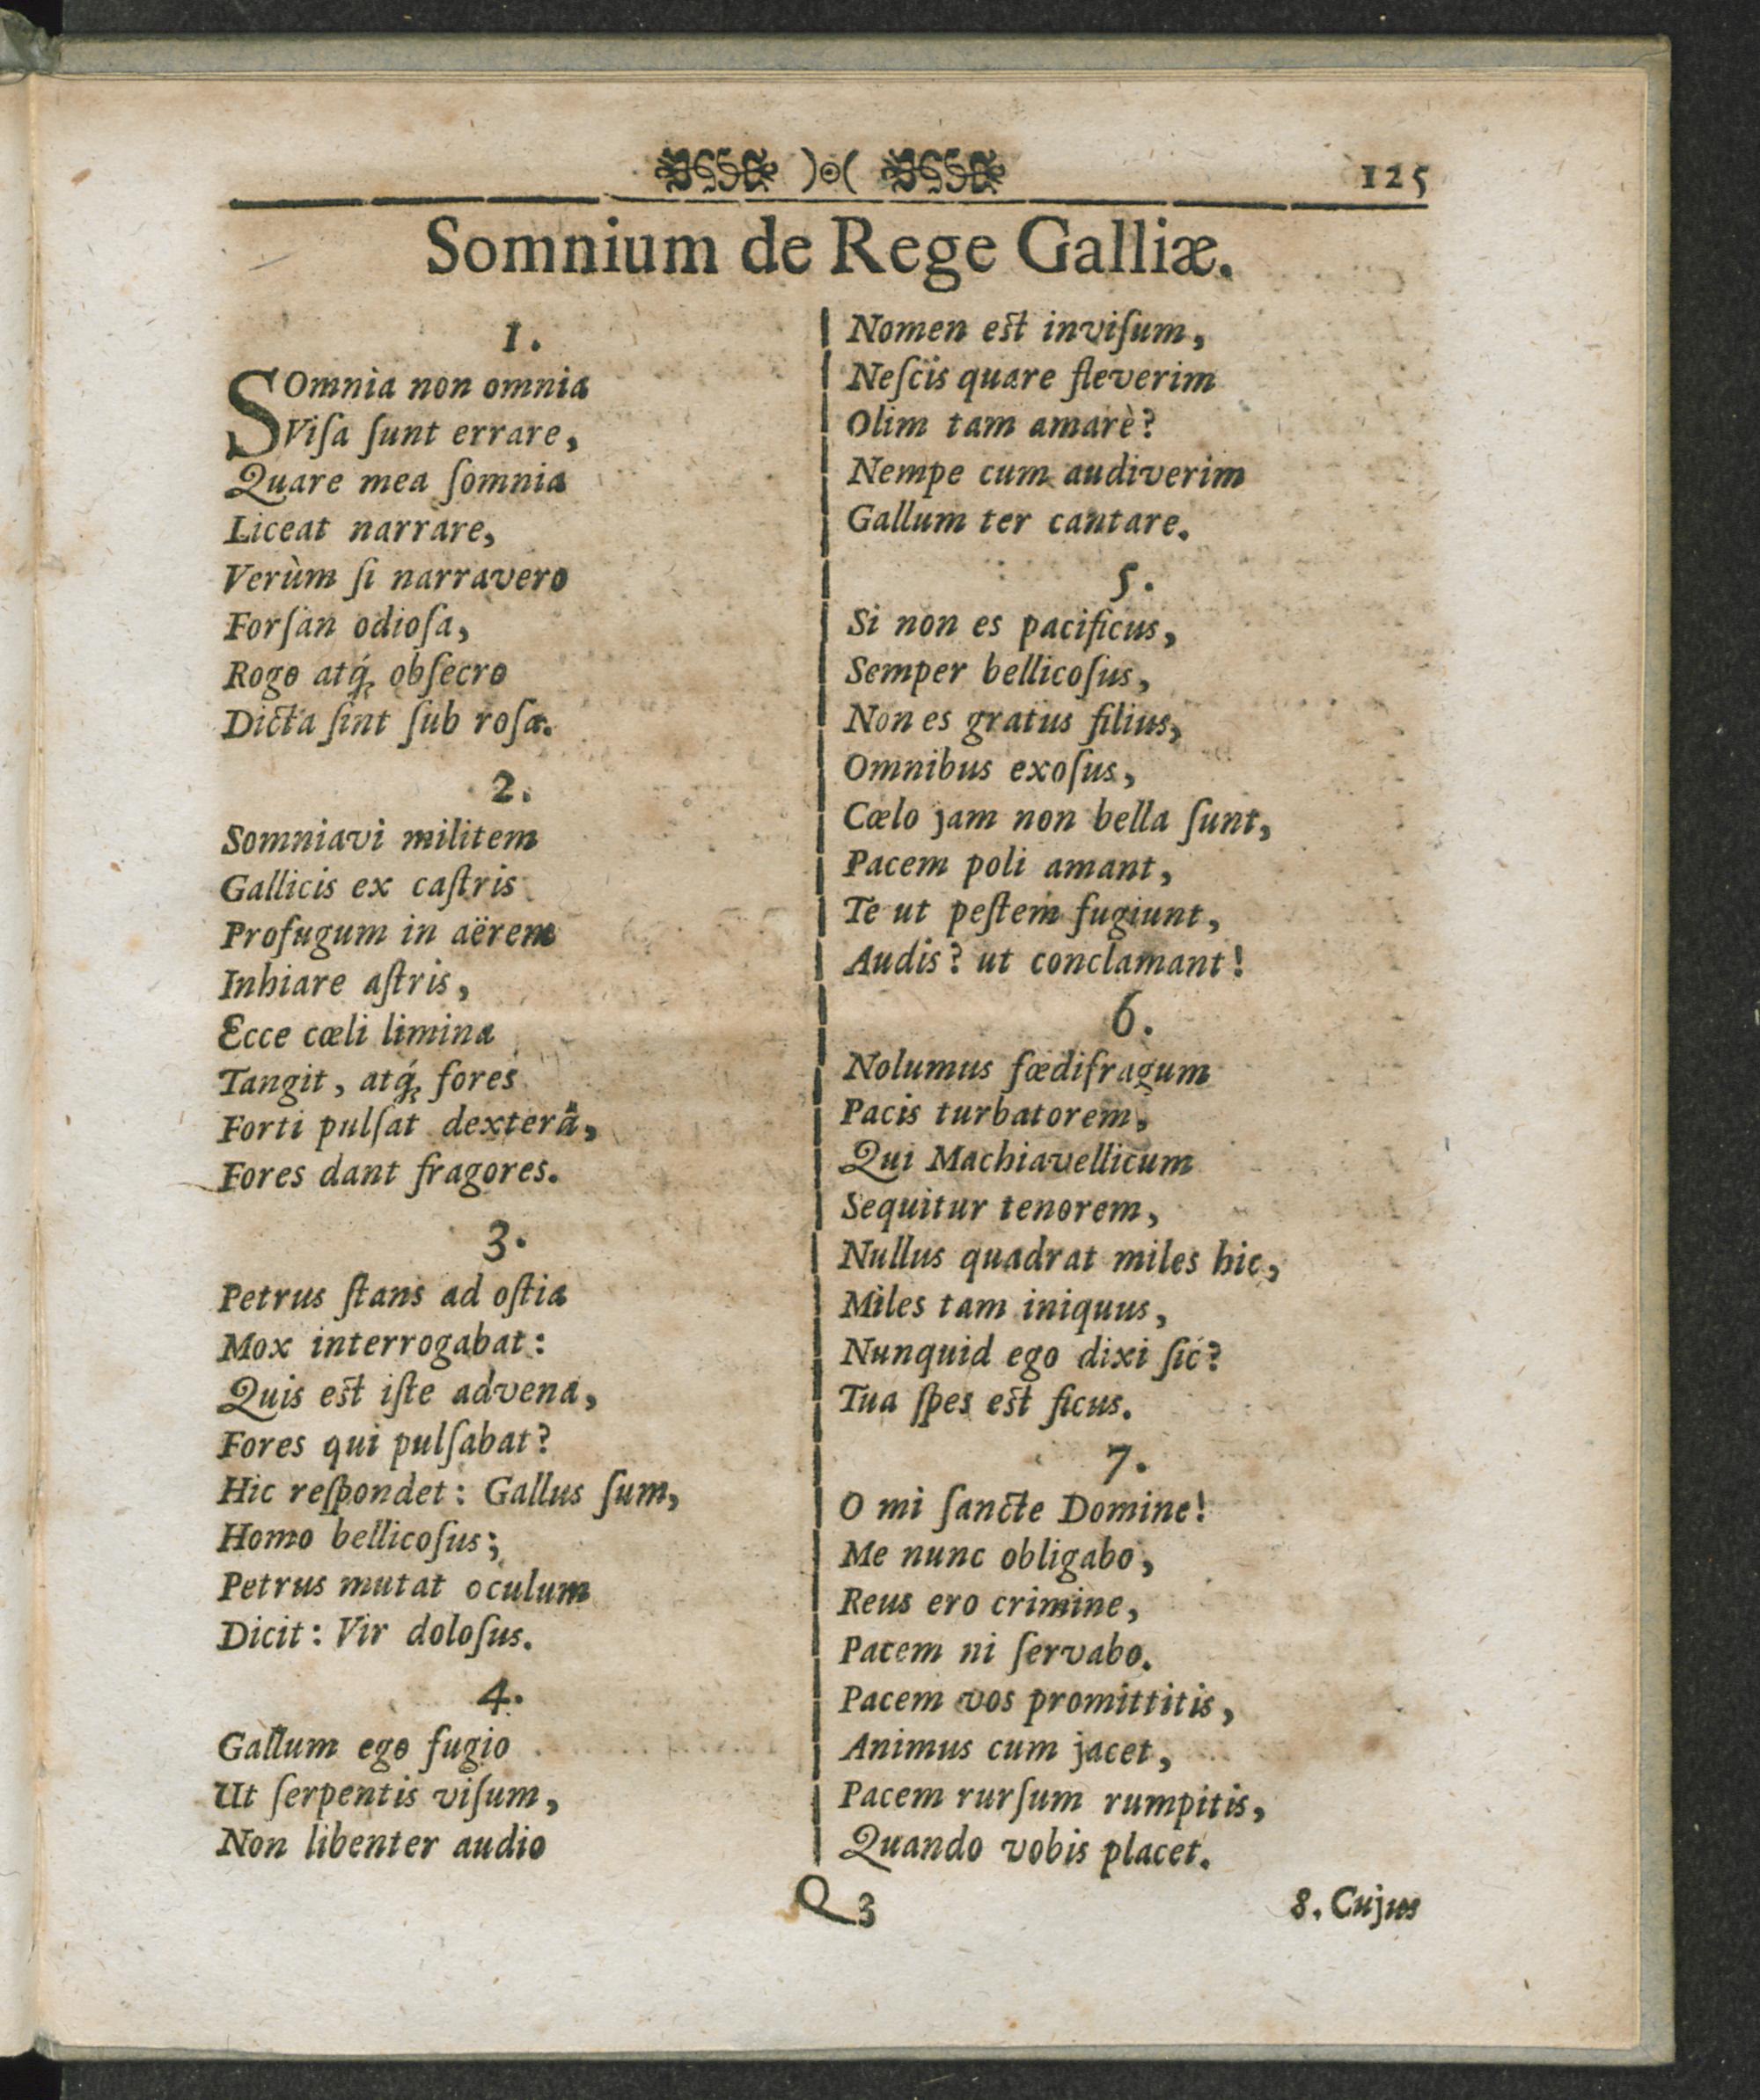 )o( 125
Somnium de Rege Galliæ.
1.
SOmnia non omnia
Viſa ſunt errare,
Quare mea ſomnia
Liceat narrare,
Verùm ſi narravero
Forſan odioſa,
Rogo atq́; obſecro
Dicta ſint ſub roſa.
2.
Somniavi militem
Gallicis ex caſtris
Profugum in aërem
Inhiare aſtris,
Ecce cœli limina
Tangit, atq́; fores
Forti pulſat dexterâ,
Fores dant fragores.
3.
Petrus ſtans ad oſtia
Mox interrogabat:
Quis est iſte advena,
Fores qui pulſabat?
Hic reſpondet: Gallus ſum,
Homo bellicoſus;
Petrus mutat oculum
Dicit: Vir doloſus.
4.
Gallum ego fugio
Ut ſerpentis viſum,
Non libenter audio
Nomen est inviſum,
Neſcis quare fleverim
Olim tam amarè?
Nempe cum audiverim
Gallum ter cantare.
5.
Si non es pacificus,
Semper bellicoſus,
Non es gratus filius,
Omnibus exoſus,
Cœlo jam non bella ſunt,
Pacem poli amant,
Te ut peſtem fugiunt,
Audis? ut conclamant!
6.
Nolumus fœdifragum
Pacis turbatorem,
Qui Machiavellicum
Sequitur tenorem,
Nullus quadrat miles hic,
Miles tam iniquus,
Nunquid ego dixi ſic?
Tua ſpes est ficus.
7.
O mi ſancte Domine!
Me nunc obligabo,
Reus ero crimine,
Pacem ni ſervabo.
Pacem vos promittitis,
Animus cum jacet,
Pacem rurſum rumpitis,
Quando vobis placet.
Q 3 8. Cujus